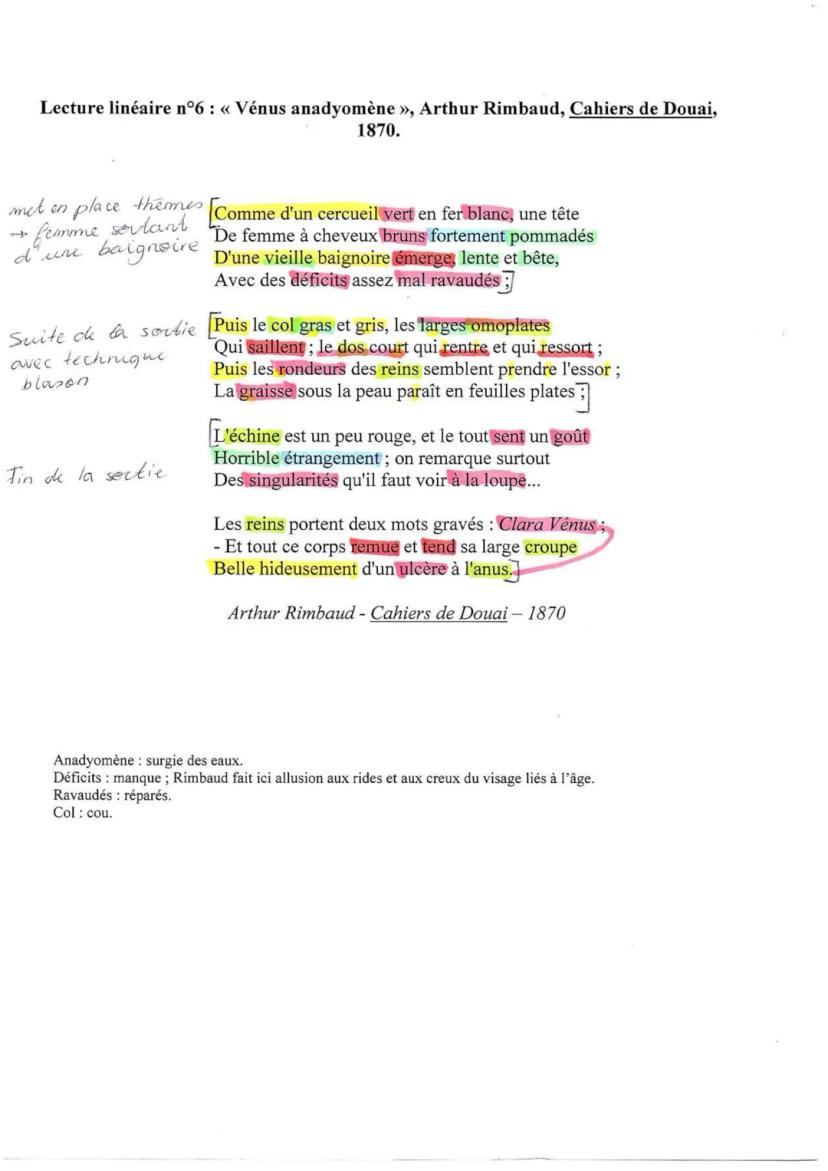 Lecture linéaire n°6 : « Vénus anadyomène », Arthur Rimbaud, Cahiers de Douai,
1870.
met en place thèmes
→ femme sortant
d'une baignoire
Comme d'un cercueil vert en fer blanc, une tête
De femme à cheveux bruns fortement pommadés
D'une vieille baignoire émerge, lente et bête,
Avec des déficits assez mal ravaudés ;
Suite de la sortie
avec technique
blason
Puis le col gras et gris, les larges omoplates
Qui saillent ; le dos court qui rentre et qui ressort ;
Puis les rondeurs des reins semblent prendre l'essor ;
La graisse sous la peau paraît en feuilles plates ;
Fin de la sortie
L'échine est un peu rouge, et le tout sent un goût
Horrible étrangement ; on remarque surtout
Des singularités qu'il faut voir à la loupe...
Les reins portent deux mots gravés : Clara Vénus ;
- Et tout ce corps remue et tend sa large croupe
Belle hideusement d'un ulcère à l'anus.
Arthur Rimbaud - Cahiers de Douai – 1870
Anadyomène : surgie des eaux.
Déficits : manque ; Rimbaud fait ici allusion aux rides et aux creux du visage liés à l'âge.
Ravaudés : réparés.
Col : cou.